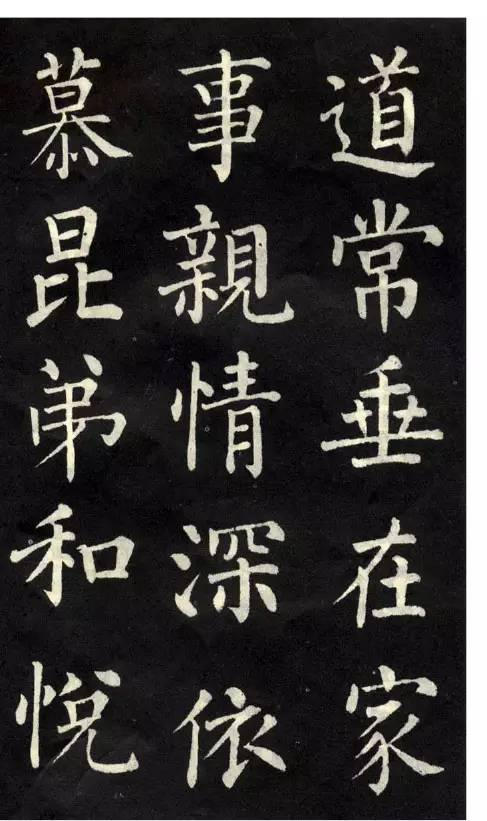 道常垂在家
事親情深依
慕昆弟和悅